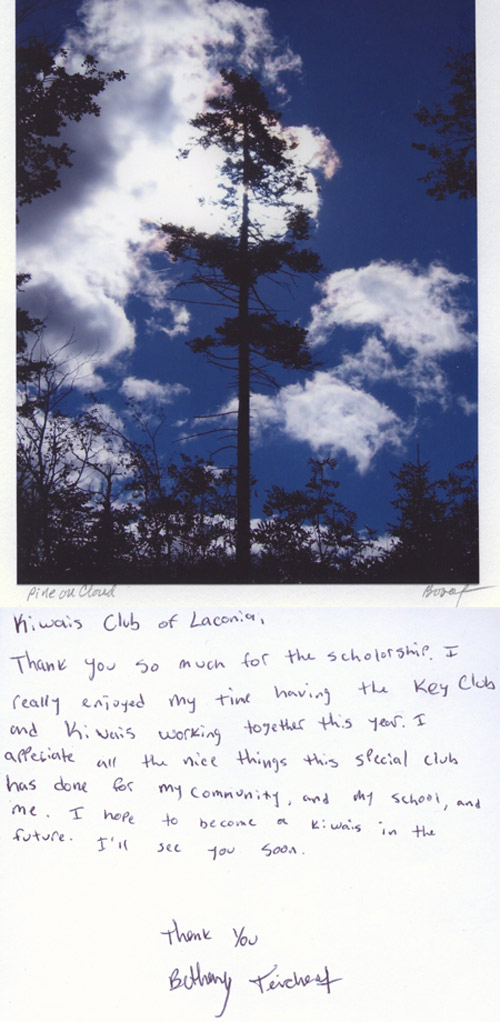 Pine on Cloud
Kiwais Club of Laconia,
Thank you so much for the scholorship. I
really enjoyed my time having the Key Club
and Kiwais working together this year. I
appeciate all the nice things this special club
has done for my community, and my school, and
me. I hope to become a Kiwais in the
future. I'll see you soon.
Thank You
Bethany